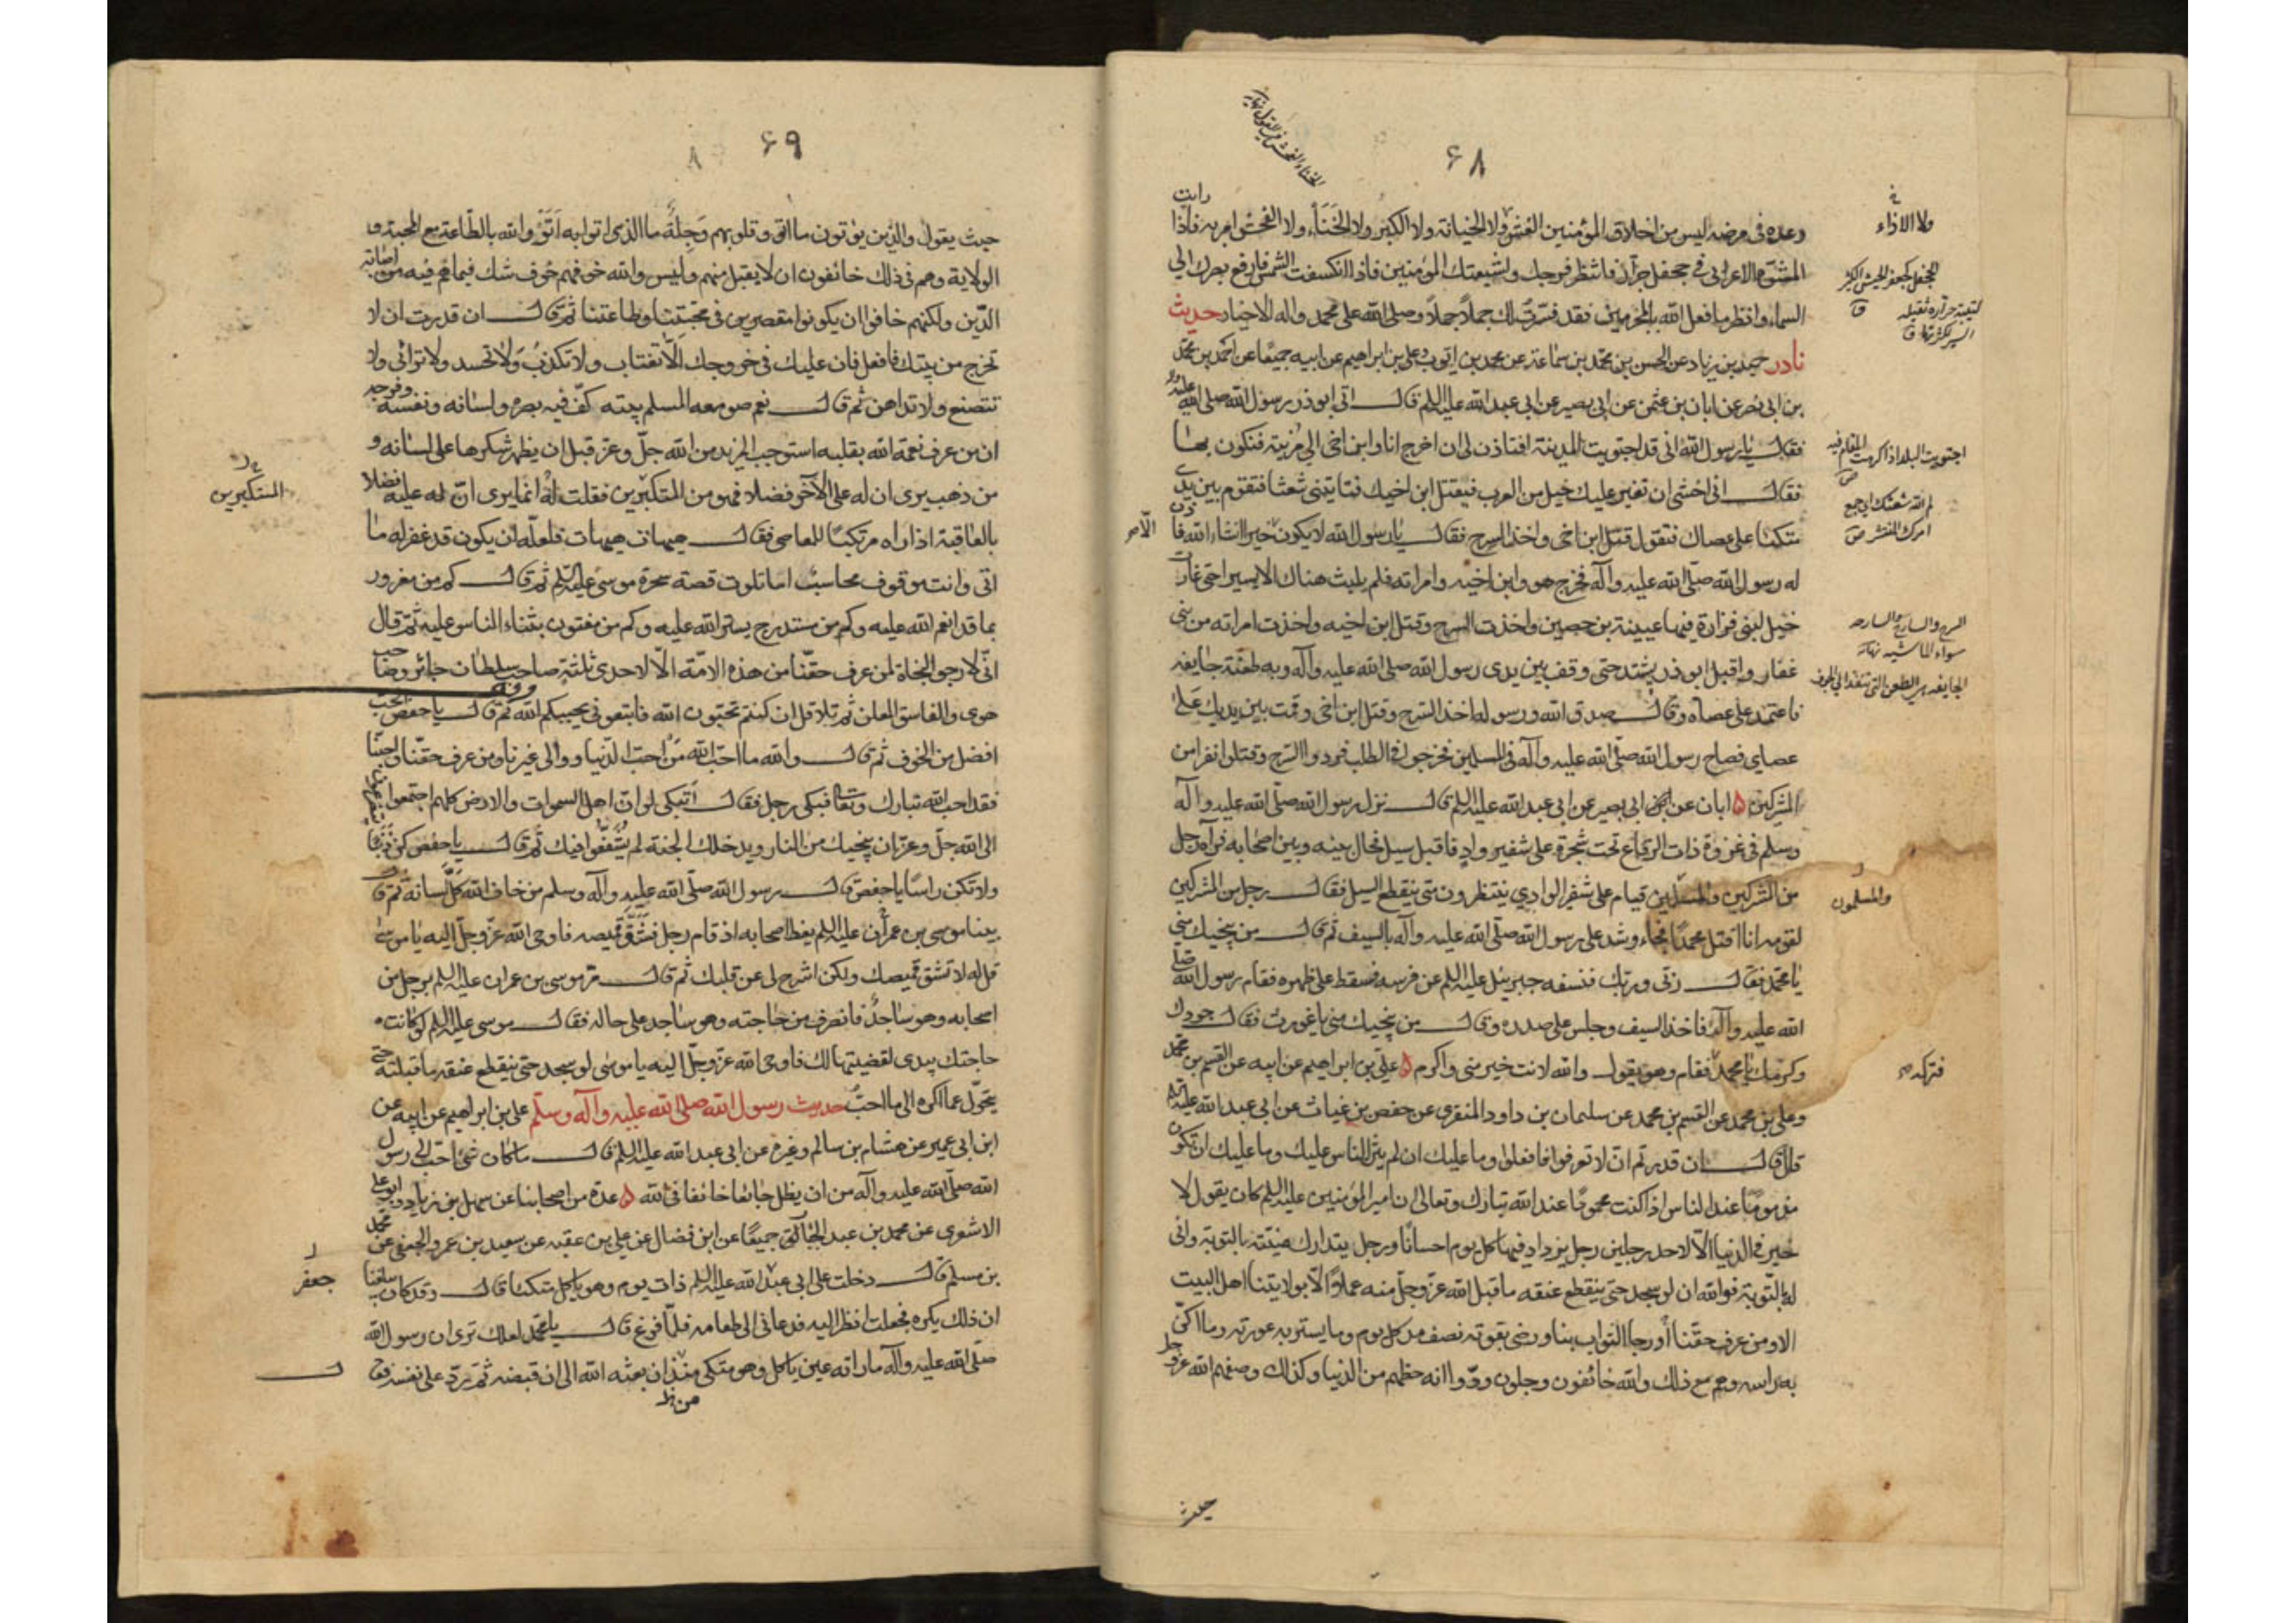 ۶۸
وعده فى مرضه ليس من اخلاق المؤمنين الغش ولا الخيانة ولا الكبر ولا الخنا ولا الفحش امر به فاذا رايت
المشوه الاعرابى فى جحفل جرار فانتظر فرجك ولشيعتك المؤمنين فاذا انكسفت الشمس فارفع بصرك الى
السماء وانظر ما فعل الله بالمجرمين فقد فسرت لك جملا جملا وصلى الله على محمد واله الاخيار حديث
نادر حميد بن زياد عن الحسن بن محمد بن سماعة عن محمد بن ايوب وعلى بن ابراهيم عن ابيه جميعا عن احمد بن محمد
بن ابى نصر عن ابان بن عثمن عن ابى بصير عن ابى عبد الله عليه السلم قال اتى ابو ذر رسول الله صلى الله عليه واله
فقال يا رسول الله انى قد اجتويت المدينة افتاذن لى ان اخرج انا وابن اخى الى مزينة فنكون بها
فقال انى اخشى ان تغير عليك خيل من العرب فيقتل ابن اخيك فتاتينى شعثا فتقوم بين يدى
متكئا على عصاك فتقول قتل ابن اخى واخذ السرح فقال يا رسول الله لا يكون خيرا انشاء الله فاذن
له رسول الله صلى الله عليه وآله فخرج هو وابن اخيه وامراته فلم يلبث هناك الا يسيرا حتى غارت
خيل لبنى فزارة فيها عيينة بن حصين واخذت السرح وقتل ابن اخيه واخذت امراته من بنى
غفار واقبل ابو ذر يشتد حتى وقف بين يدى رسول الله صلى الله عليه وآله وبه طعنة جايفه
فاعتمد على عصاه وقال صدق الله ورسوله اخذ السرح وقتل ابن اخى وقمت بين يديك على
عصاى فصاح رسول الله صلى الله عليه وآله فى المسلمين فخرجوا فى الطلب فردوا السرح وقتلوا نفرا من
المشركين ۵ ابان عن ابى بصير عن ابى عبد الله عليه السلم قال نزل رسول الله صلى الله عليه وآله
وسلم فى غزوة ذات الرقاع تحت شجرة على شفير واد فاقبل سيل فحال بينه وبين اصحابه فرآه رجل
من المشركين والمسلمين قيام على شفير الوادى ينتظرون متى ينقطع السيل فقال رجل من المشركين
لقومه انا اقتل محمدا فجاء وشد على رسول الله صلى الله عليه وآله بالسيف ثم قال من ينجيك منى
يا محمد فقال ربى وربك فنسفه جبرئيل عليه السلم عن فرسه فسقط على ظهره فقام رسول الله صلى
الله عليه وآله فاخذ السيف وجلس على صدره وقال من ينجيك منى يا غورث فقال جودك
وكرمك يا محمد فقام وهو يقول والله لانت خير منى واكرم ۵ على بن ابراهيم عن ابيه عن القسم بن محمد
وعلى بن محمد عن القسم بن محمد عن سليمان بن داود المنقرى عن حفص بن غياث عن ابى عبد الله عليه السلم
قال قال ان قدرتم ان لا تعرفوا فافعلوا وما عليك ان لم يثن الناس عليك وما عليك ان تكون
مذموما عند الناس اذا كنت محمودا عند الله تبارك وتعالى ان امير المؤمنين عليه السلم كان يقول لا
خير فى الدنيا الا لاحد رجلين رجل يزداد فيها كل يوم احسانا ورجل يتدارك منيته بالتوبة وانى
له بالتوبة فوالله ان لو سجد حتى ينقطع عنقه ما قبل الله عز وجل منه عملا الا بولايتنا اهل البيت
الا ومن عرف حقنا اورجا الثواب بنا ورضى بقوته نصف مد كل يوم وما يستر به عورته وما اكن
به راسه وهم مع ذلك والله خائفون وجلون ودوا انه حظهم من الدنيا وكذلك وصفهم الله عز وجل
حيث
ولا الاذاء
اجتويت البلد اذا كرهت المقام فيه
لم الله شعثك اى جمع
امرك المنتشر ص
السرح والسارح والسارحه
سواء الماشيه
الجايفه هى الطعن التى تنفذ الى الجوف
والمسلمون
فتركه
۶۹
حيث يقول والذين يؤتون ما اتوا وقلوبهم وجلة ما الذى اتوا به اتوا والله بالطاعة مع المحبة و
الولاية وهم فى ذلك خائفون ان لا يقبل منهم وليس والله خوفهم خوف شك فيما هم فيه من اصابة
الدين ولكنهم خافوا ان يكونوا مقصرين فى محبتنا وطاعتنا ثم قال ان قدرت ان لا
تخرج من بيتك فافعل فان عليك فى خروجك الا تغتاب ولا تكذب ولا تحسد ولا ترائى ولا
تتصنع ولا تداهن ثم قال نعم صومعه المسلم بيته كف فيه بصره ولسانه ونفسه وفرجه
ان من عرف نعمة الله بقلبه استوجب المزيد من الله جل وعز قبل ان يظهر شكرها على لسانه و
من ذهب يرى ان له على الآخر فضلا فهو من المتكبرين فقلت له انما يرى ان له عليه فضلا
بالعاقبة اذا راه مرتكبا للمعاصى فقال هيهات هيهات فلعله ان يكون قد غفر له ما
اتى وانت موقوف محاسب اما تلوت قصة سحرة موسى عليه السلم ثم قال كم من مغرور
بما قد انعم الله عليه وكم من مستدرج يستر الله عليه وكم من مفتون بثناء الناس عليه ثم قال
انى لارجوا النجاة لمن عرف حقنا من هذه الامة الا لاحدى ثلثة صاحب سلطان جائر وصاحب
هوى والفاسق المعلن ثم تلا قل ان كنتم تحبون الله فاتبعونى يحببكم الله ثم قال يا حفص الحب
افضل من الخوف ثم قال والله ما احب الله من احب الدنيا ووالى غيرنا ومن عرف حقنا واحبنا
فقد احب الله تبارك وتعالى فبكى رجل فقال أتبكى لو ان اهل السموات والارض كلهم اجتمعوا يتضرعون
الى الله جل وعز ان ينجيك من النار ويدخلك الجنة لم يشفعوا فيك ثم قال يا حفص كن ذنبا
ولا تكن راسا يا حفص قال رسول الله صلى الله عليه وآله وسلم من خاف الله كل لسانه ثم قال
بينا موسى بن عمران عليه السلم يعظ اصحابه اذ قام رجل فشق قميصه فاوحى الله عز وجل اليه يا موسى
قل له لا تشق قميصك ولكن اشرح لى عن قلبك ثم قال مر موسى بن عمران عليه السلم برجل من
اصحابه وهو ساجد فانصرف من حاجته وهو ساجد على حاله فقال موسى عليه السلم لو كانت
حاجتك بيدى لقضيتها لك فاوحى الله عز وجل اليه يا موسى لو سجد حتى ينقطع عنقه ما قبلته حتى
يتحول عما اكره الى ما احب حديث رسول الله صلى الله عليه وآله وسلم على بن ابراهيم عن ابيه عن
ابن ابى عمير عن هشام بن سالم وغيره عن ابى عبد الله عليه السلم قال ما كان شئ احب الى رسول
الله صلى الله عليه وآله من ان يظل جائعا خائفا فى الله ۵ عدة من اصحابنا عن سهل بن زياد وابو على
الاشعرى عن محمد بن عبد الجبار جميعا عن ابن فضال عن على بن عقبه عن سعيد بن عمرو الجعفى عن محمد
بن مسلم قال دخلت على ابى عبد الله عليه السلم ذات يوم وهو ياكل متكئا قال وقد كان يبلغنا
ان ذلك يكره فجعلت انظر اليه فدعانى الى طعامه فلما فرغ قال يا محمد لعلك ترى ان رسول الله
صلى الله عليه وآله ما راته عين ياكل وهو متكى منذ ان بعثه الله الى ان قبضه ثم رد على نفسه فقال
المستكبرين
جعفر